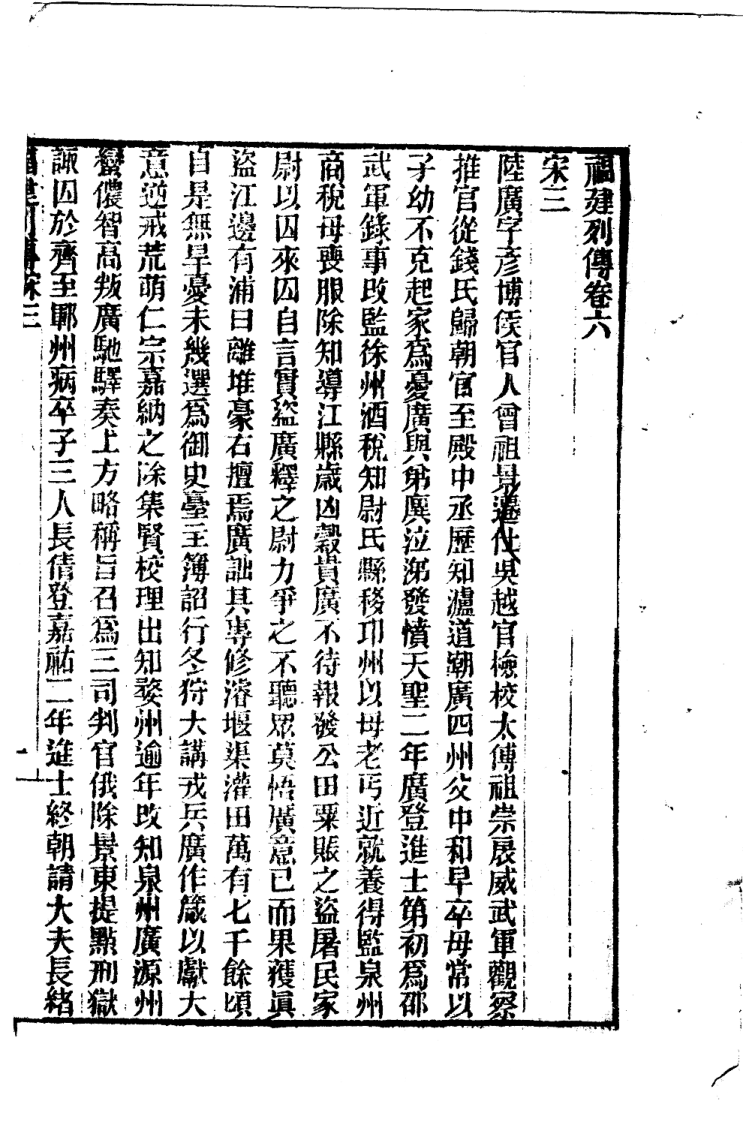 福建列傳卷六
宋三
陸廣字彥博侯官人曾祖景遷仕吳越官檢校太傅祖崇扆威武軍觀察
推官從錢氏歸朝官至殿中丞歷知瀘道潮廣四州父中和早卒母常以
子幼不克起家爲憂廣與弟廙泣涕發憤天聖二年廣登進士第初爲邵
武軍錄事改監徐州酒稅知尉氏縣移卭州以母老丐近就養得監泉州
商稅母喪服除知導江縣歲凶穀貴廣不待報發公田粟賬之盜屠民家
尉以囚來囚自言實盜廣釋之尉力爭之不聽眾莫悟廣意已而果獲眞
盜江邊有浦曰離堆豪右擅焉廣詘其專修濬堰渠灌田萬有七千餘頃
自是無旱憂未幾選爲御史臺主簿詔行冬狩大講戎兵廣作箴以獻大
意逆戒荒萌仁宗嘉納之除集賢校理出知婺州逾年改知泉州廣源州
蠻儂智高叛廣馳驛奏上方略稱旨召爲三司判官俄除景東提點刑獄
讞囚於齊至鄆州病卒子三人長倩登嘉祐二年進士終朝請大夫長緒
福建列傳宋三
一